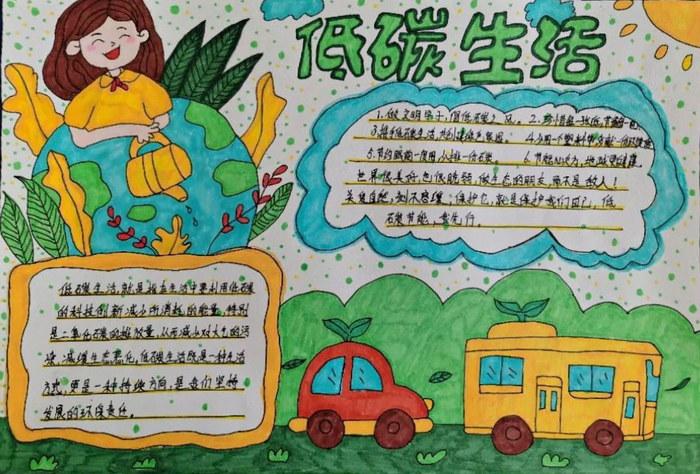 低碳生活
1.做文明学子,倡低碳之风。 2.珍惜每一张纸,节约每一电
3.推低碳生活,共创绿色家园。 4.少用一个塑料节贡献一份绿意
5.节约账前一使用,从推一低碳。 6.节能
世界很美好也很脆弱,做生态的朋友而不是敌人!
关爱自然,刻不容缓:保护它,就是保护我们自己,低
碳节能,我先行。
低碳生活就是指在生活中要利用低碳
的科技创新减少所消耗的能量,特别
是二氧化碳的排放量,从而减少对大气的污
染,减缓生态恶化,低碳生活既是一种生活
方式,更是一种持续方向,是我们坚持
发展的环保责任。